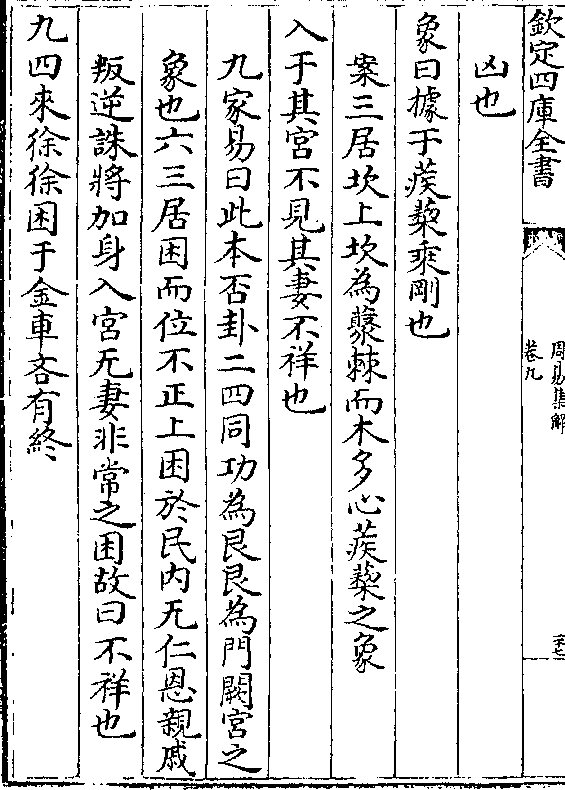 欽定四庫全書
周易集解
卷九
凶也
象曰據于蒺蔾乘剛也
案三居坎上坎為藂棘而木多心蒺蔾之象
入于其宮不見其妻不祥也
九家易曰此本否卦二四同功為艮艮為門闕宮之
象也六三居困而位不正上困於民内无仁恩親戚
叛逆誅將加身入宮无妻非常之困故曰不祥也
九四來徐徐困于金車吝有終